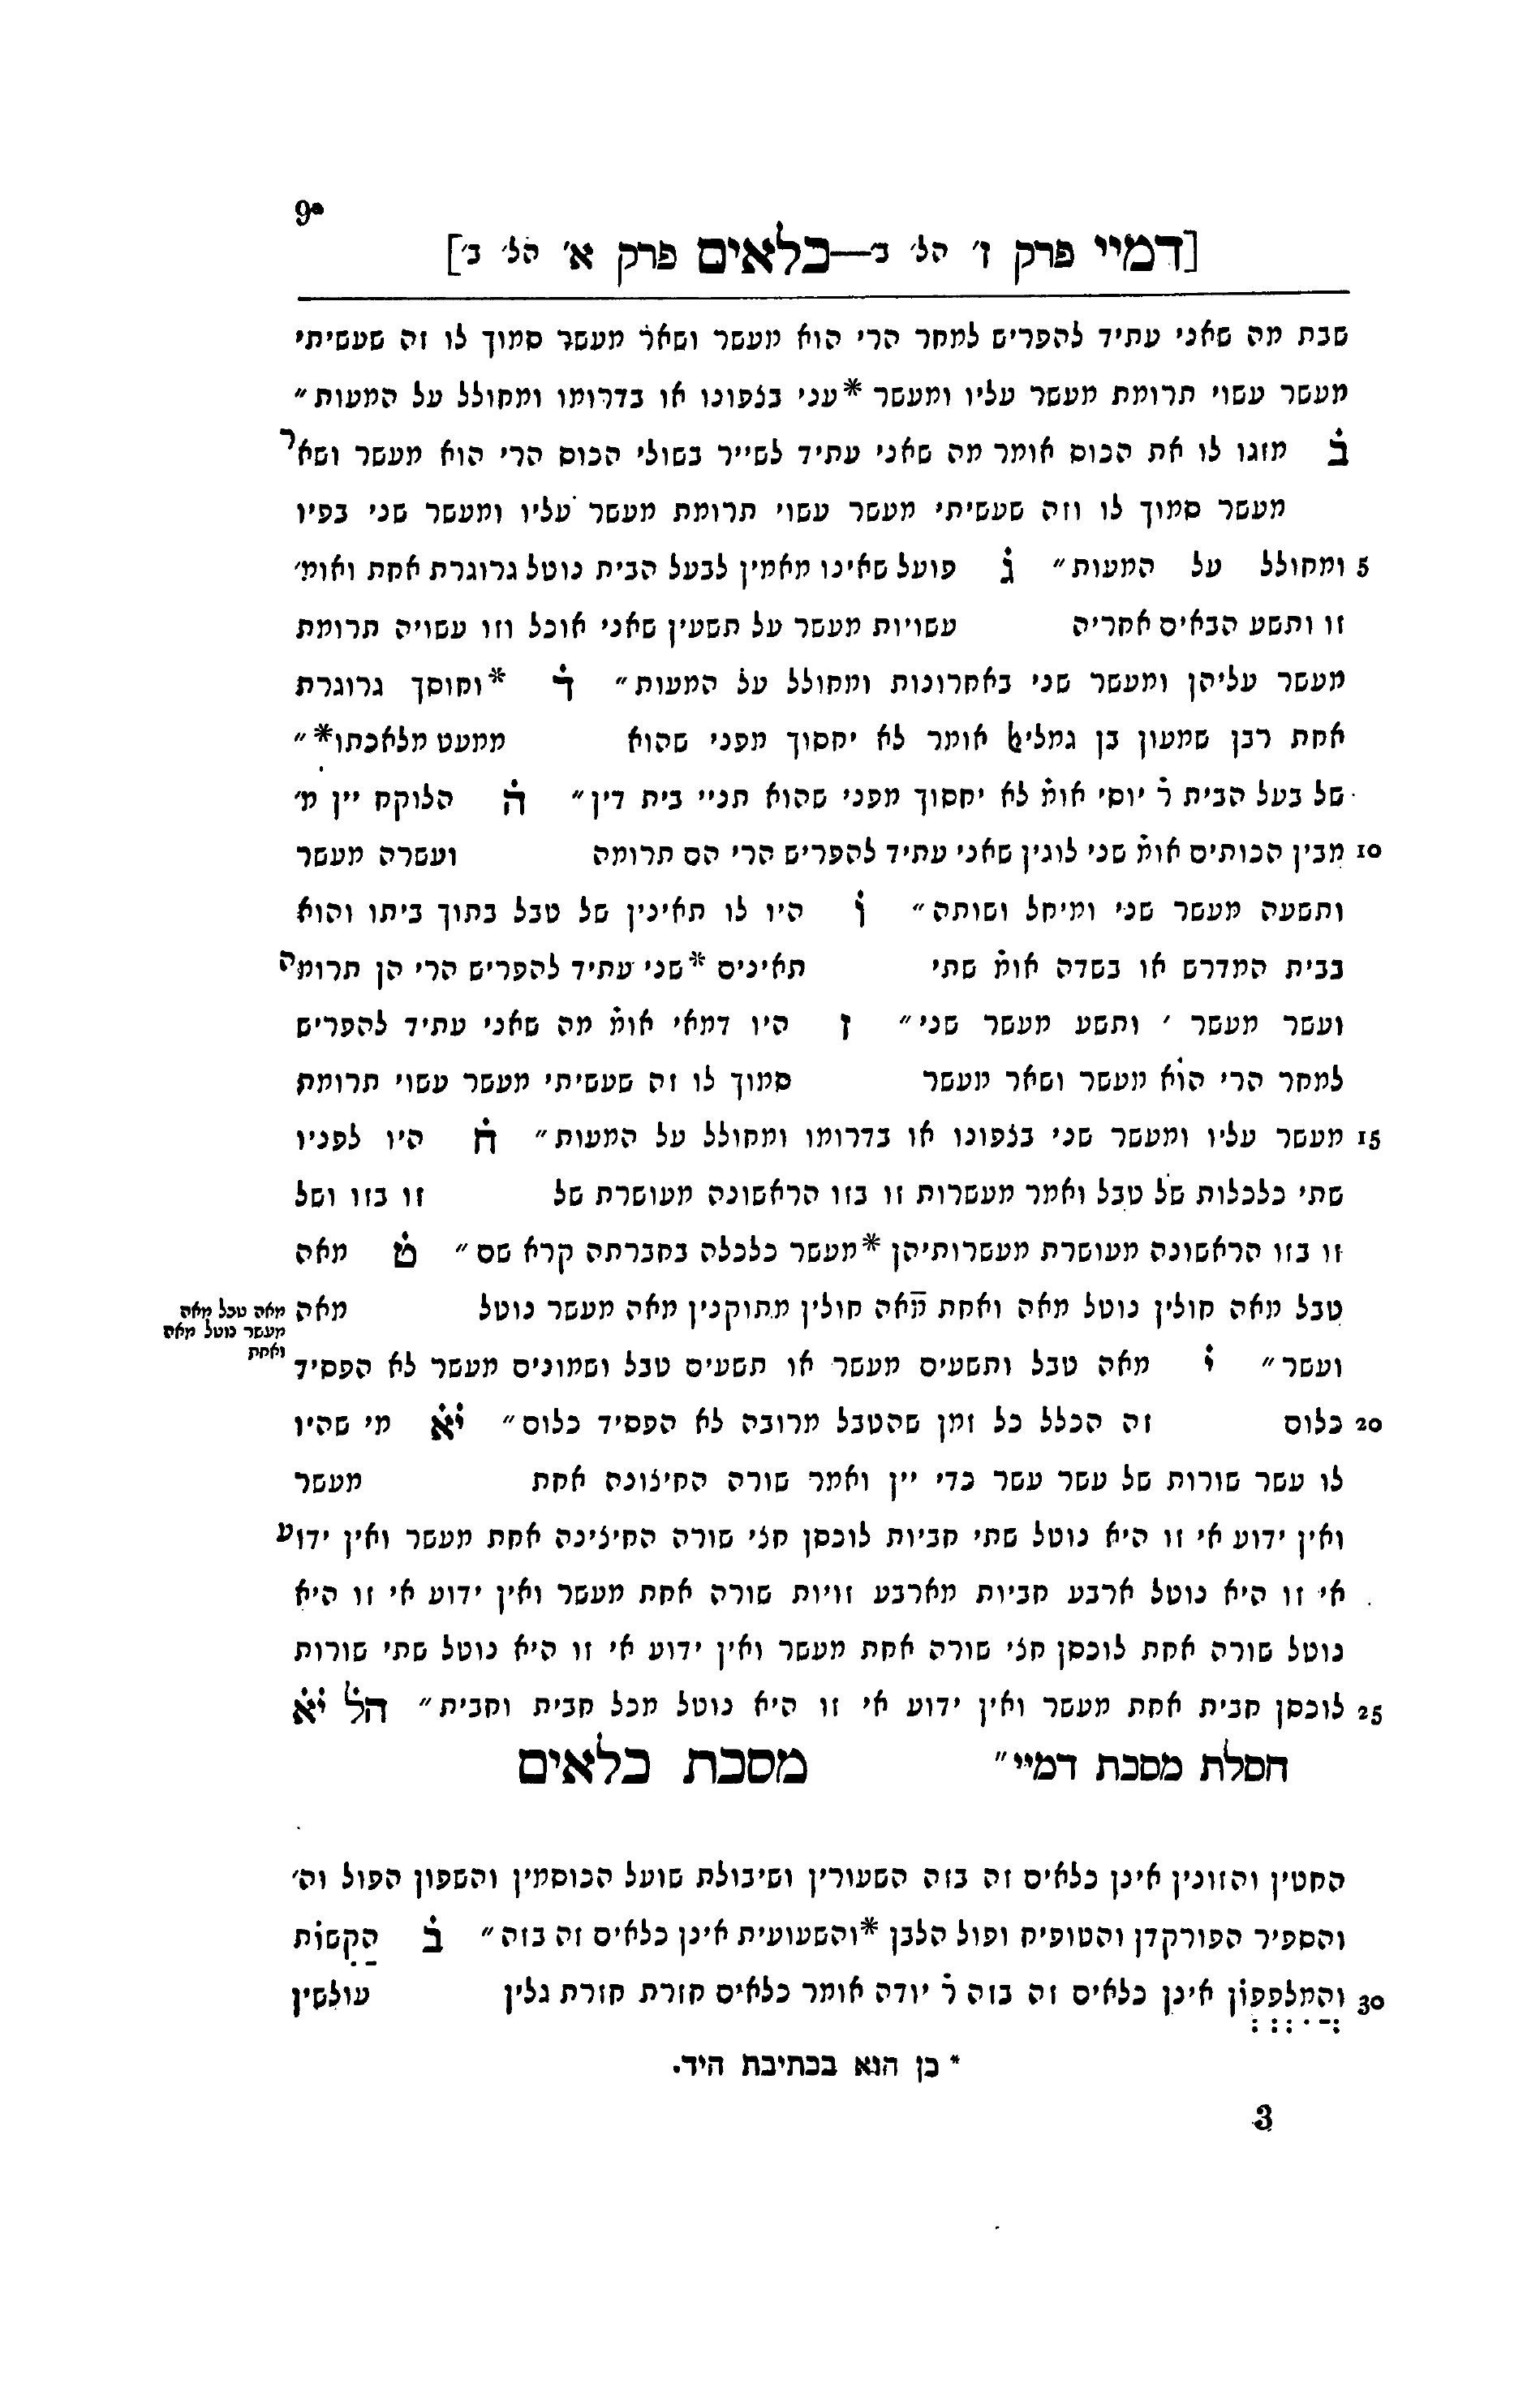 9a
[דמיי פרק ז׳ הל׳ ב׳—כלאים פרק א׳ הל׳ ב׳]
שבת מה שאני עתיד להפריש למחר הרי הוא מעשר ושאר מעשר סמוך לו זה שעשיתי
מעשר עשוי תרומת מעשר עליו ומעשר *עני בצפונו או בדרומו ומחולל על המעות״
ב̇ מזגו לו את הכוס אומר מה שאני עתיד לשייר בשולי הכוס הרי הוא מעשר ושאר
מעשר סמוך לו וזה שעשיתי מעשר עשוי תרומת מעשר עליו ומעשר שני בפיו
5 ומחולל על המעות״ ג̇ פועל שאינו מאמין לבעל הבית נוטל גרוגרת אחת ואומ׳
זו ותשע הבאים אחריה עשויות מעשר על תשעין שאני אוכל וזו עשויה תרומת
מעשר עליהן ומעשר שני באחרונות ומחולל על המעות״ ד̇ *וחוסך גרוגרת
אחת רבן שמעון בן גמליﭏ אומר לא יחסוך מפני שהוא ממעט מלאכתו*״
של בעל הבית ר̇ יוסי אומ̇ לא יחסוך מפני שהוא תניי בית דין״ ה̇ הלוקח יין מ׳
10 מבין הכותים אומ̇ שני לוגין שאני עתיד להפריש הרי הם תרומה ועשרה מעשר
ותשעה מעשר שני ומיחל ושותה״ ו̇ היו לו תאינין של טבל בתוך ביתו והוא
בבית המדרש או בשדה אומ̇ שתי תאינים *שני עתיד להפריש הרי הן תרומה
ועשר מעשר ׳ ותשע מעשר שני״ ז̇ היו דמאי אומ̇ מה שאני עתיד להפריש
למחר הרי הוא מעשר ושאר מעשר סמוך לו זה שעשיתי מעשר עשוי תרומת
15 מעשר עליו ומעשר שני בצפונו או בדרומו ומחולל על המעות״ ח̇ היו לפניו
שתי כלכלות של טבל ואמר מעשרות זו בזו הראשונה מעושרת של זו בזו ושל
זו בזו הראשונה מעושרת מעשרותיהן *מעשר כלכלה בחברתה קרא שם״ ט̇ מאה
טבל מאה חולין נוטל מאה ואחת מאה חולין מתוקנין מאה מעשר נוטל מאה
מאה טבל מאה
מעשר נוטל מאה
ואחת
ועשר״ י̇ מאה טבל ותשעים מעשר או תשעים טבל ושמונים מעשר לא הפסיד
20 כלום זה הכלל כל זמן שהטבל מרובה לא הפסיד כלום״ י̇א̇ מי שהיו
לו עשר שורות של עשר עשר כדי יין ואמר שורה החיצונה אחת מעשר
ואין ידוע אי זו היא נוטל שתי חביות לוכסן חצי שורה החיצינה אחת מעשר ואין ידוע
אי זו היא נוטל ארבע חביות מארבע זויות שורה אחת מעשר ואין ידוע אי זו היא
נוטל שורה אחת לוכסן חצי שורה אחת מעשר ואין ידוע אי זו היא נוטל שתי שורות
25 לוכסן חבית אחת מעשר ואין ידוע אי זו היא נוטל מכל חבית וחבית״ הל̇ י̇א̇
חסלת מסכת דמיי״ מסכת כלאים
החטין והזונין אינן כלאים זה בזה השעורין ושיבולת שועל הכוסמין והשפון הפול וה׳
והספיר הפורקדן והטופיח ופול הלבן *והשעועית אינן כלאים זה בזה״ ב̇ הַקִשּוֹת
30 והמלפפון אינן כלאים זה בזה ר̇ יודה אומר כלאים חזרת חזרת גלין עולשין
* כן הוא בכתיבת היד.
3